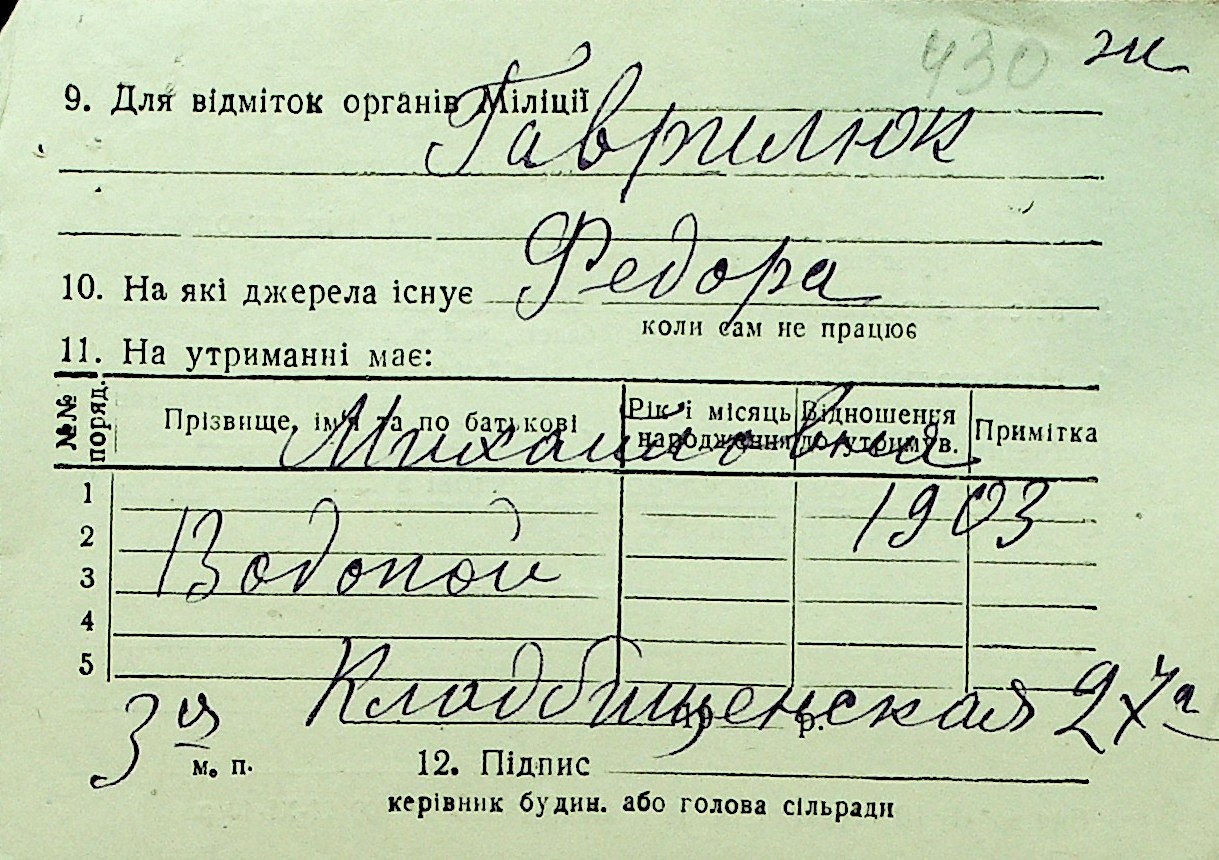 430 ж
9. Для відміток органів Міліції
Гаврилюк
Федора
10. На які джерела існує
коли сам не працює
11. На утриманні має:
№№ поряд. Прізвище, ім'я та по батькові Рік і місяць народження Відношення до утримув. Примітка
Михайловна
1 1903
2
Водопой
3
4
5
3я Кладбищенская 27а
р.
м. п. 12. Підпис
керівник будин. або голова сільради